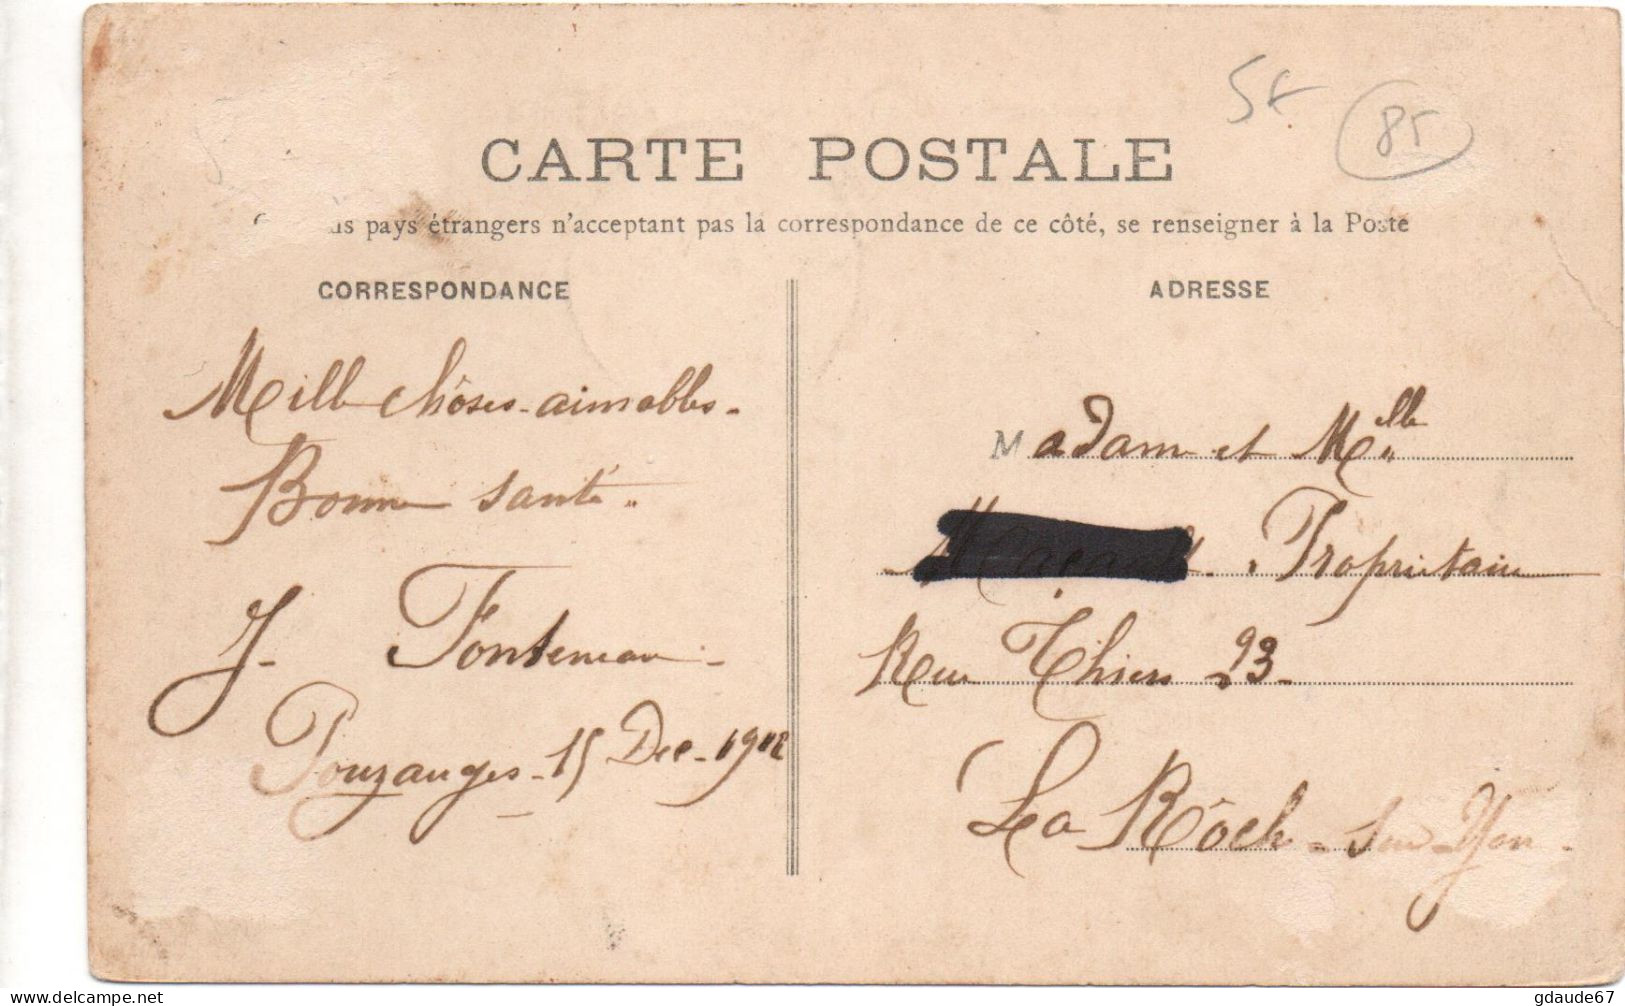 5€
85
CARTE POSTALE
pays étrangers n'acceptant pas la correspondance de ce côté, se renseigner à la Poste
CORRESPONDANCE
ADRESSE
Mille chôses aimables.
Bonne santé.
J. Fonteneau.
Pouzauges. 15 Dec.
Madame et Melle
Propriétaire
Rue Thiers 93.
La Rôche-sur-Yon.
gdaude67